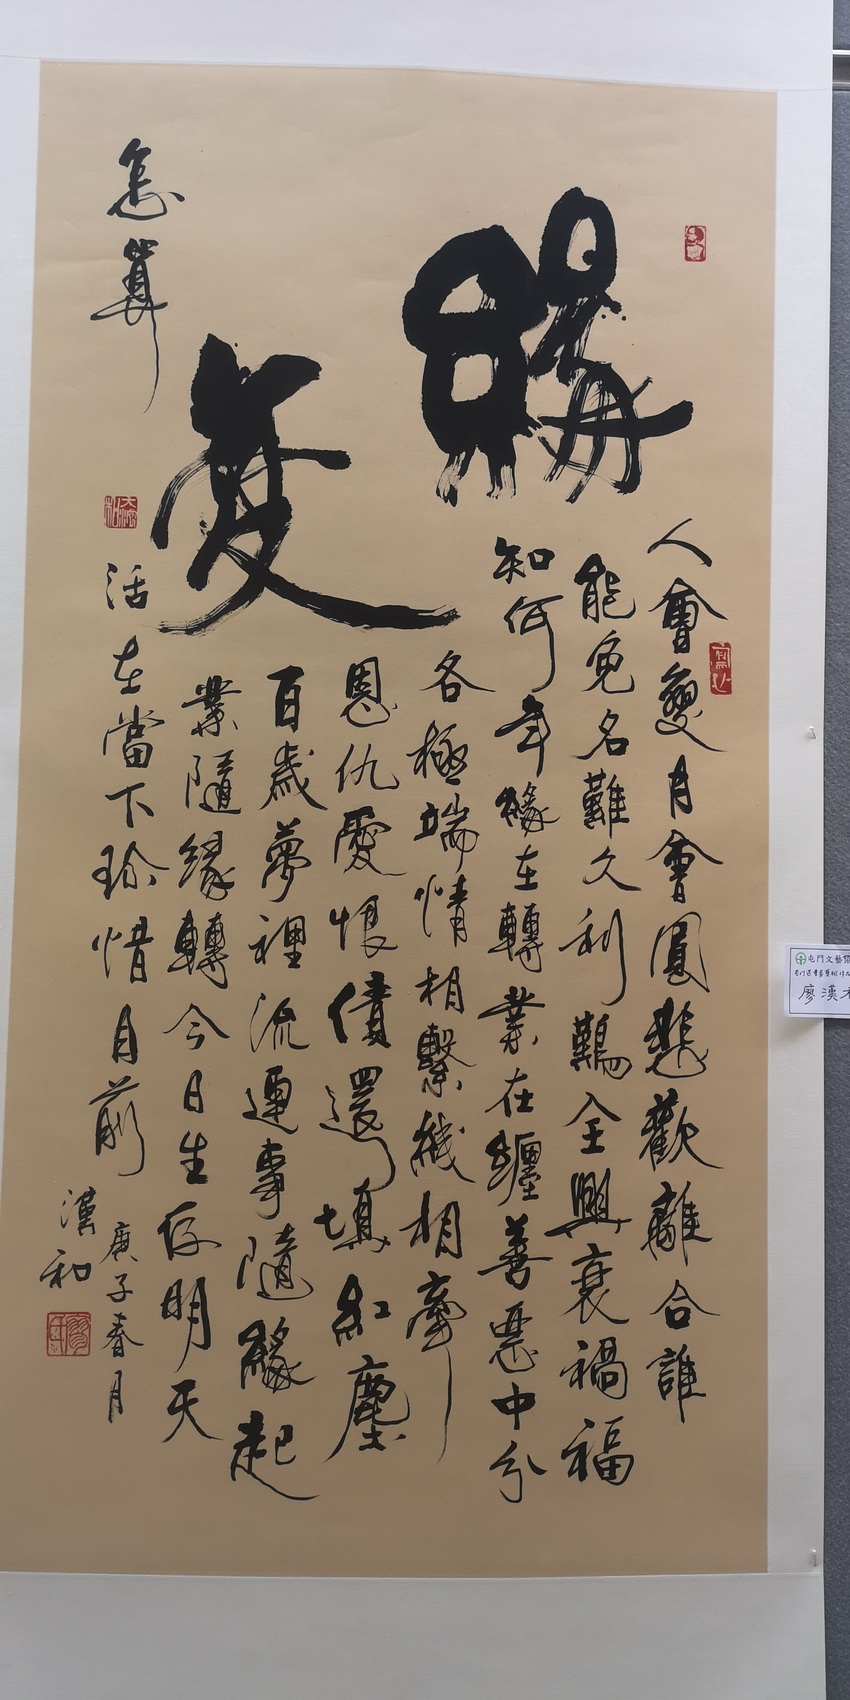 人會變月會圓悲歡離合誰
能免名難久利難全興衰禍福
知何年緣在轉業在纏善惡中分
各極端情相繫綫相牽
恩仇愛恨債還填紅塵
百歲夢裡流連事隨緣起
業隨緣轉今日生存明天
怎算
活在當下珍惜目前
庚子春月
漢和
屯門文藝
廖漢